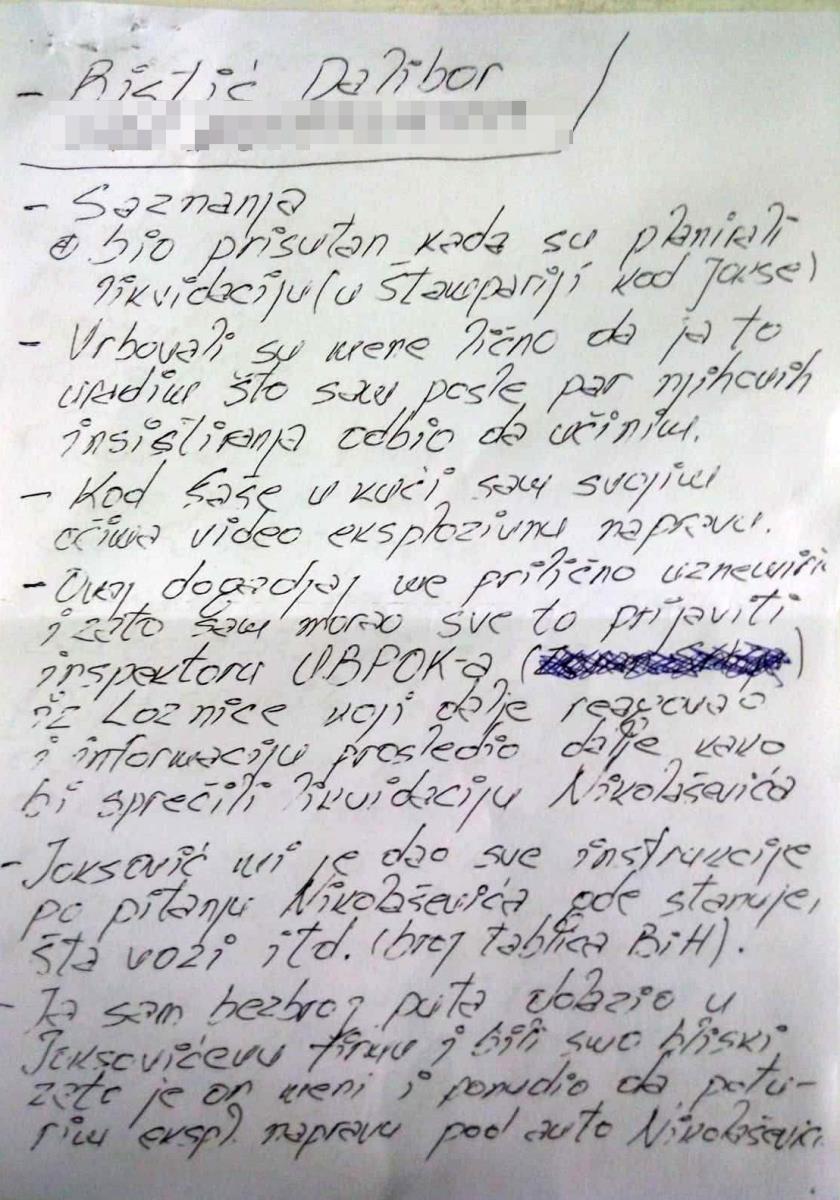 - Ristić Dalibor
- Saznanja
bio prisutan kada su planirali
likvidaciju (u štampariji kod Jokse)
- Vrbovali su mene lično da ja to
uradim što sam posle par njihovih
insistiranja odbio da učinim.
- Kod Saše u kući sam svojim
očima video eksplozivnu napravu.
- Ovaj dogadjaj me prilično uznemiri
i zato sam morao sve to prijaviti
inspektoru UBPOK-a ( )
iz Loznice koji dalje reagovao
i informaciju prosledio dalje kako
bi sprečili likvidaciju Nikolaševića
- Joksović mi je dao sve instrukcije
po pitanju Nikolaševića gde stanuje,
šta vozi itd. (broj tablica BiH).
- Ja sam bezbroj puta dolazio u
Joksovićevu firmu i bili smo bliski
zato je on meni i ponudio da potu-
rim ekspl. napravu pod auto Nikolaševića